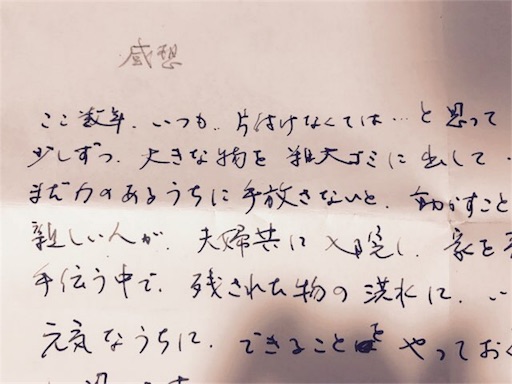 感想
ここ数年、いつも、片付けなくては…と思って
少しずつ、大きな物を粗大ゴミに出して
まだ力のあるうちに手放さないと、動かすこと
親しい人が、夫婦共に入院し、家を
手伝う中で、残された物の洪水に、い
元気なうちに、できることをやってお